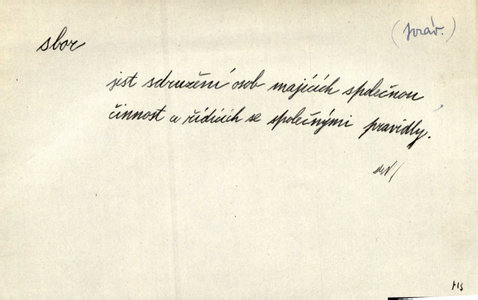 sbor
(práv.)
jest sdružení osob majících společnou
činnost a řídících se společnými pravidly.